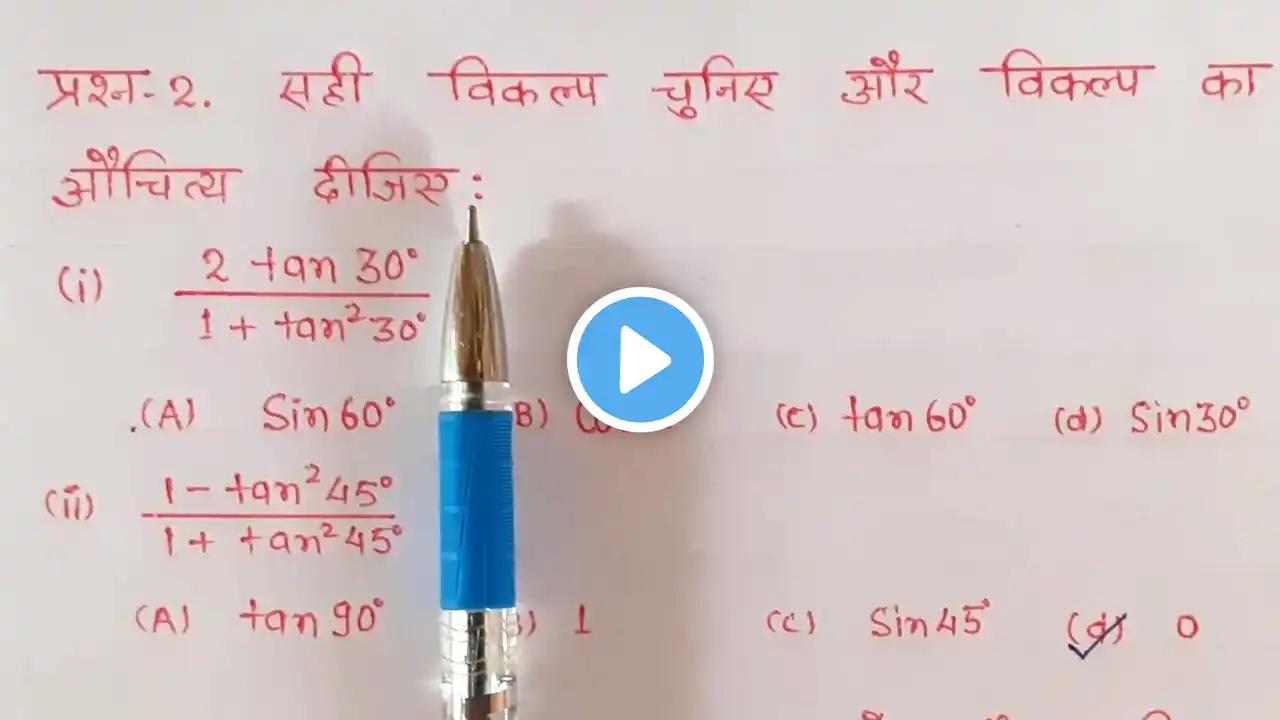 प्रश्न-2. सही विकल्प चुनिए और विकल्प का
औचित्य दीजिए:
(i) 2 tan 30°
1 + tan² 30°
(A) Sin 60° B) (c) tan 60° (d) Sin 30°
(ii) 1 - tan² 45°
1 + tan² 45°
(A) tan 90° ) 1 (c) Sin 45° (d) 0